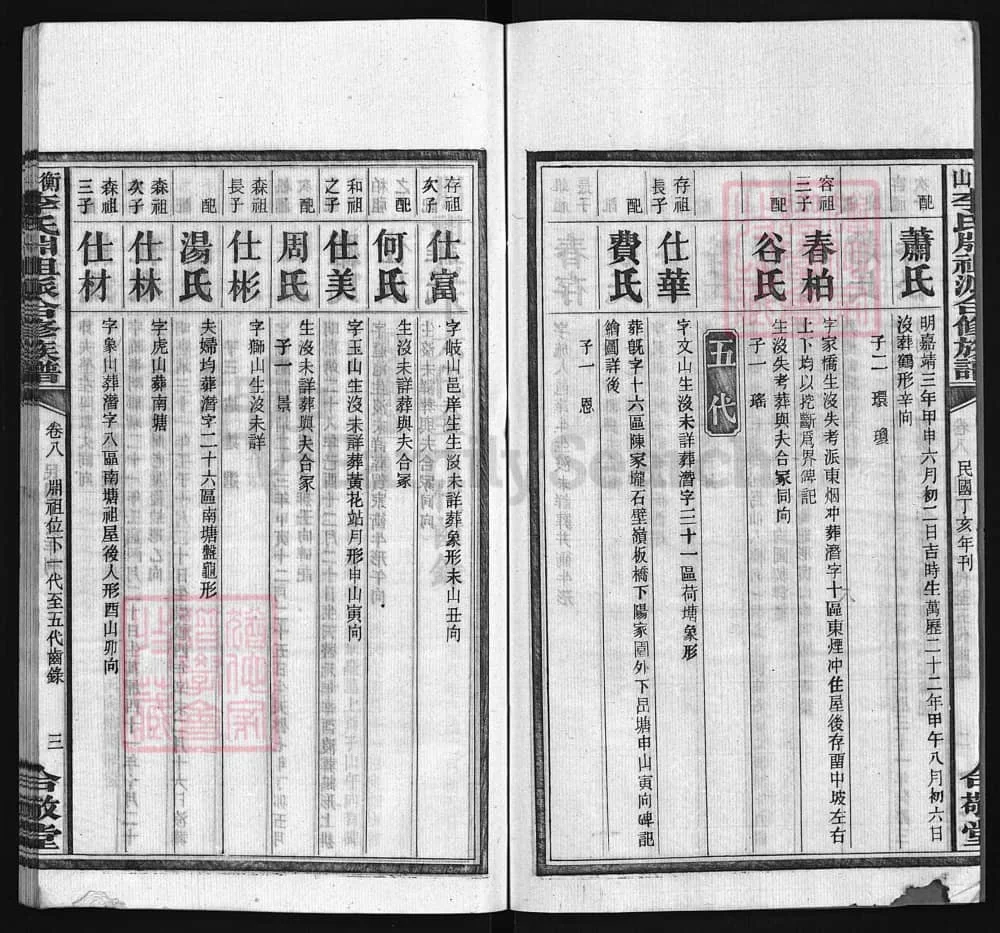 山李氏鼎祖派合修族譜
卷八
民國丁亥年刊
合敬堂
配
蕭氏
明嘉靖三年甲申六月初二日吉時生萬歷二十二年甲午八月初六日
沒葬鶴形辛向
子二 環 瓊
容祖
三子
春柏
字家橋生沒失考派東烟冲葬潛字十區東煙冲住屋後存畱中坡左右
上下均以挖斷爲界碑記
配
谷氏
生沒失考葬與夫合冢同向
子一 瑤
五代
存祖
長子
仕華
字文山生沒未詳葬潛字三十一區荷塘象形
配
費氏
葬旣字十六區陳家壠石壁嶺板橋下陽家園外下嵒塘申山寅向碑記
繪圖詳後
子一 恩
存祖
次子
仕富
字岐山邑庠生生沒未詳葬象形未山丑向
配
何氏
生沒未詳葬與夫合冢
和祖
之子
仕美
字玉山生沒未詳葬黃花站月形申山寅向
配
周氏
生沒未詳葬與夫合冢
子一 景
森祖
長子
仕彬
字獅山生沒未詳
配
湯氏
夫婦均葬潛字二十六區南塘盤龜形
森祖
次子
仕林
字虎山葬南塘
森祖
三子
仕材
字象山葬潛字八區南塘祖屋後人形酉山卯向
衡李氏鼎祖派合修族譜
卷八
鼎祖位下一代至五代齒錄
三
合敬堂